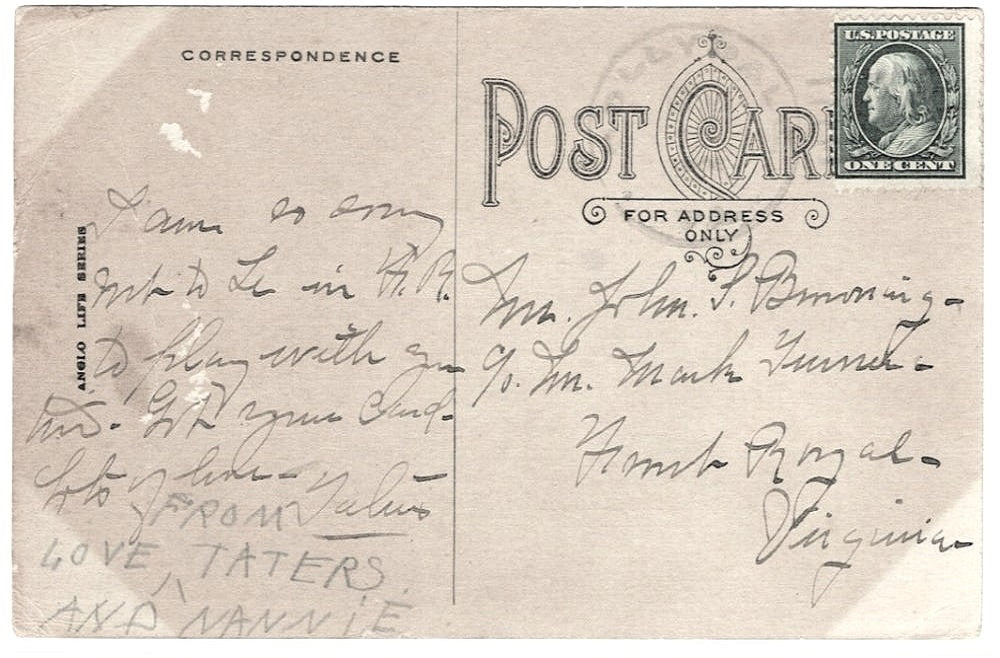 CORRESPONDENCE
POST CARD
FOR ADDRESS
ONLY
U.S. POSTAGE
ONE CENT
ANGLO LIFE SERIES
I am so sorry
not to be in F. R.
to play with you
Got your Card.
Lots of love - Taters
FROM
LOVE ^ TATERS
AND NANNIE
Mr. John. S. Browning-
c/o. Mr. Mark Turner-
Front Royal-
Virginia-